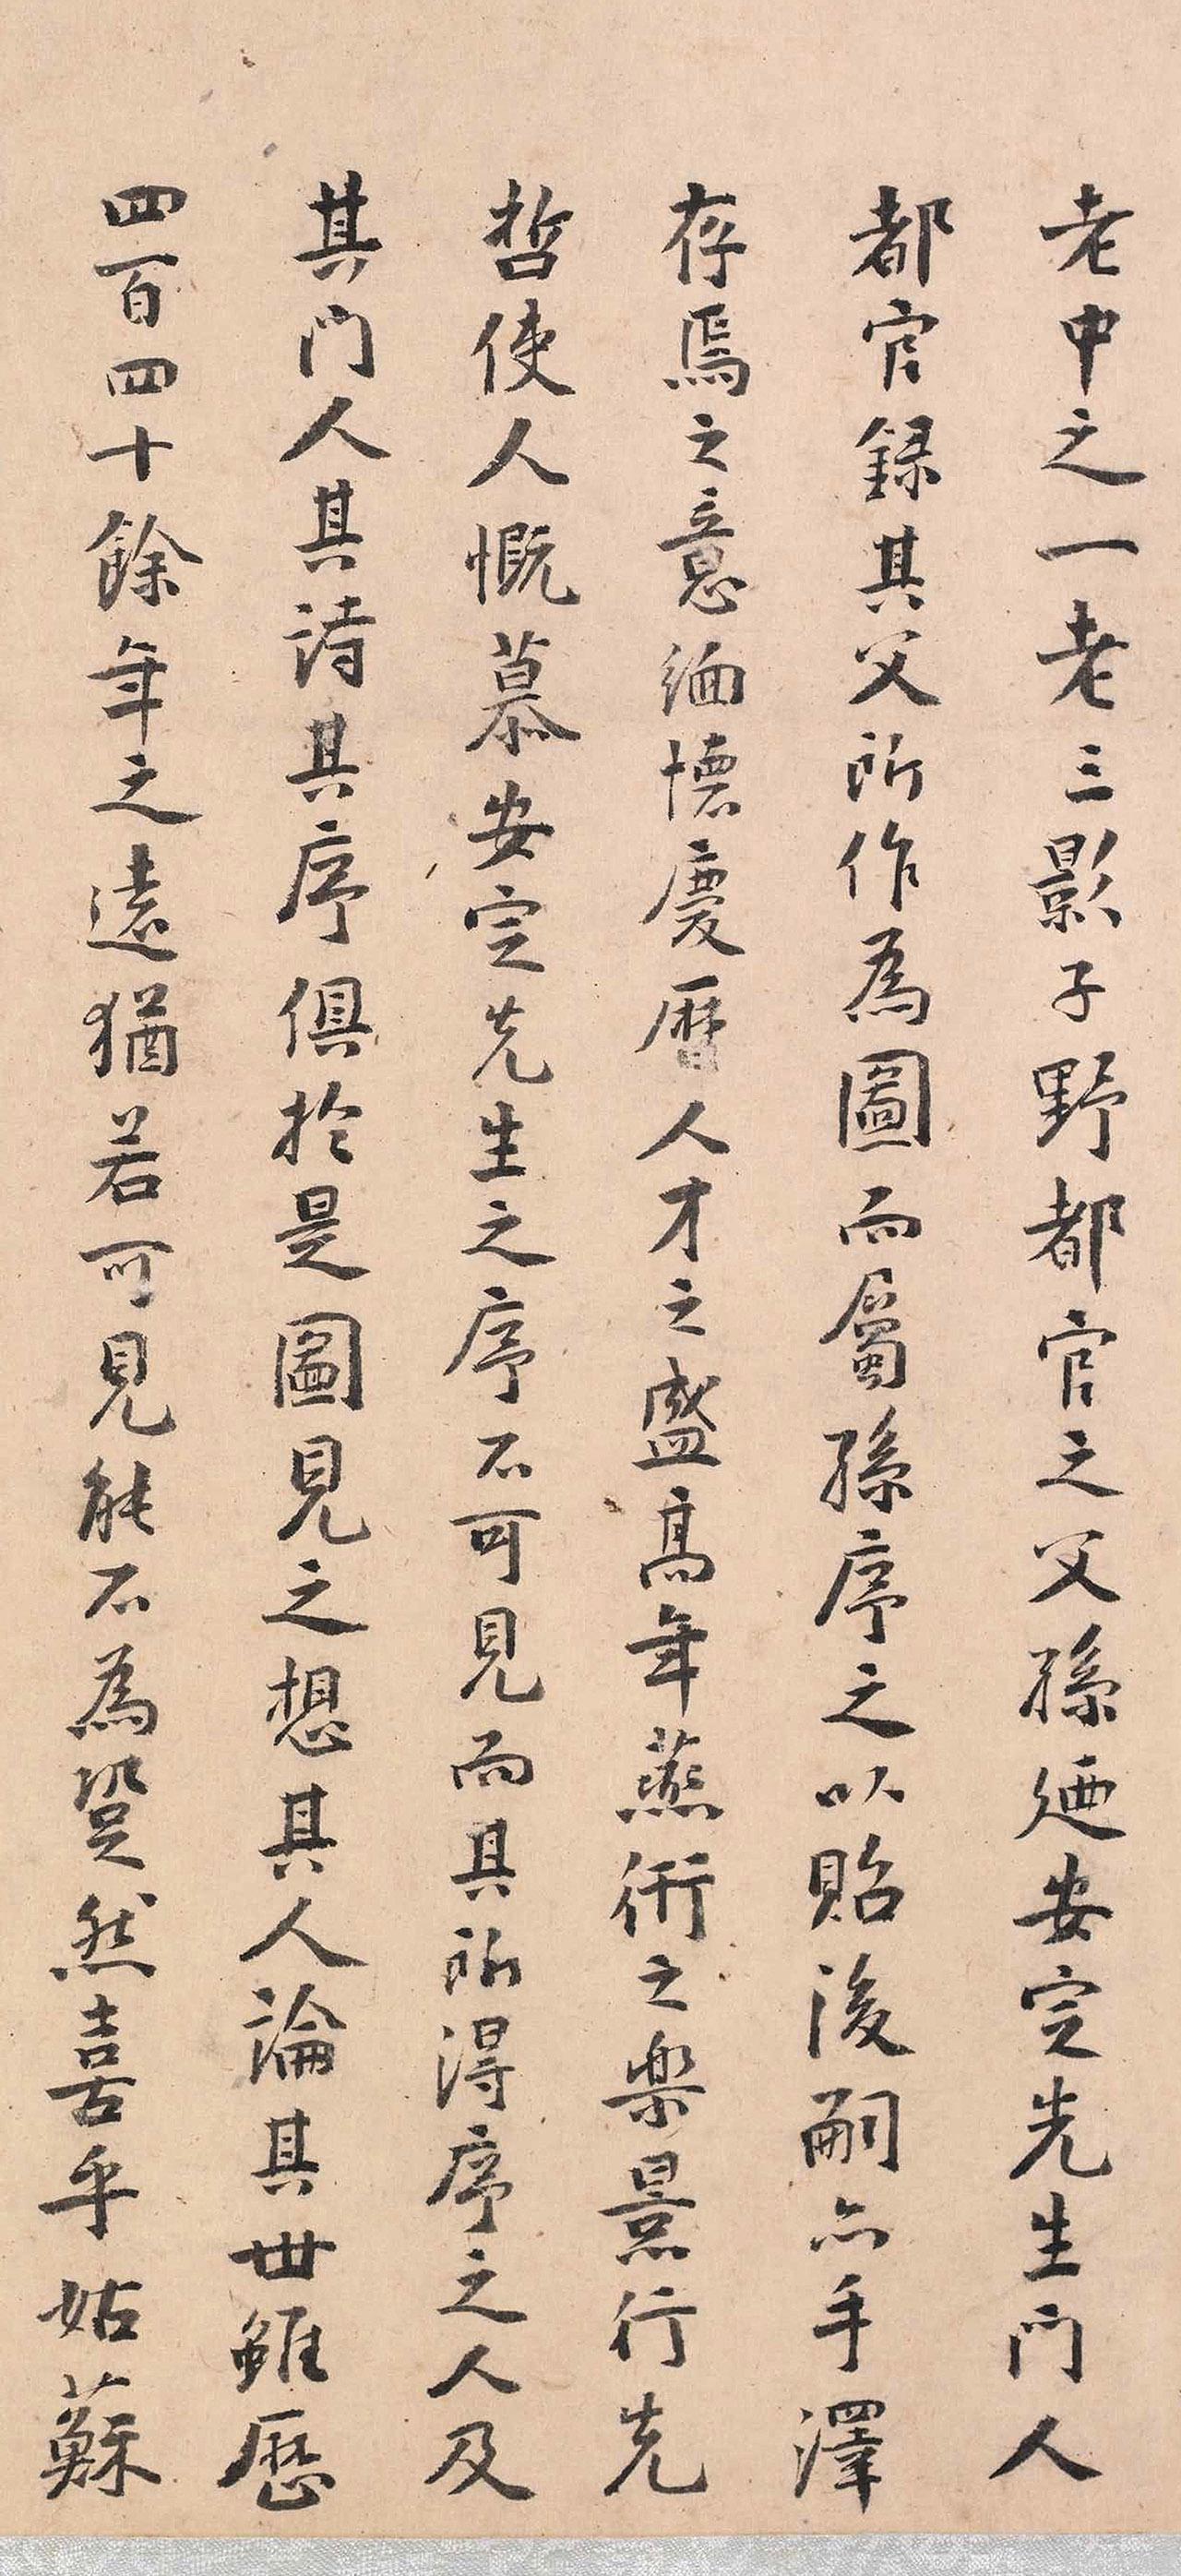 老中之一老三影子野都官之父孫廼安定先生門人
都官録其父所作為圖而屬孫序之以貽後嗣亦手澤
存焉之意緬懐慶曆人才之盛髙年燕衎之樂景行先
哲使人慨慕安定先生之序不可見而其所得序之人及
其門人其詩其序俱於是圖見之想其人論其世雖歷
四百四十餘年之遠猶若可見能不為跫然喜乎姑蘇